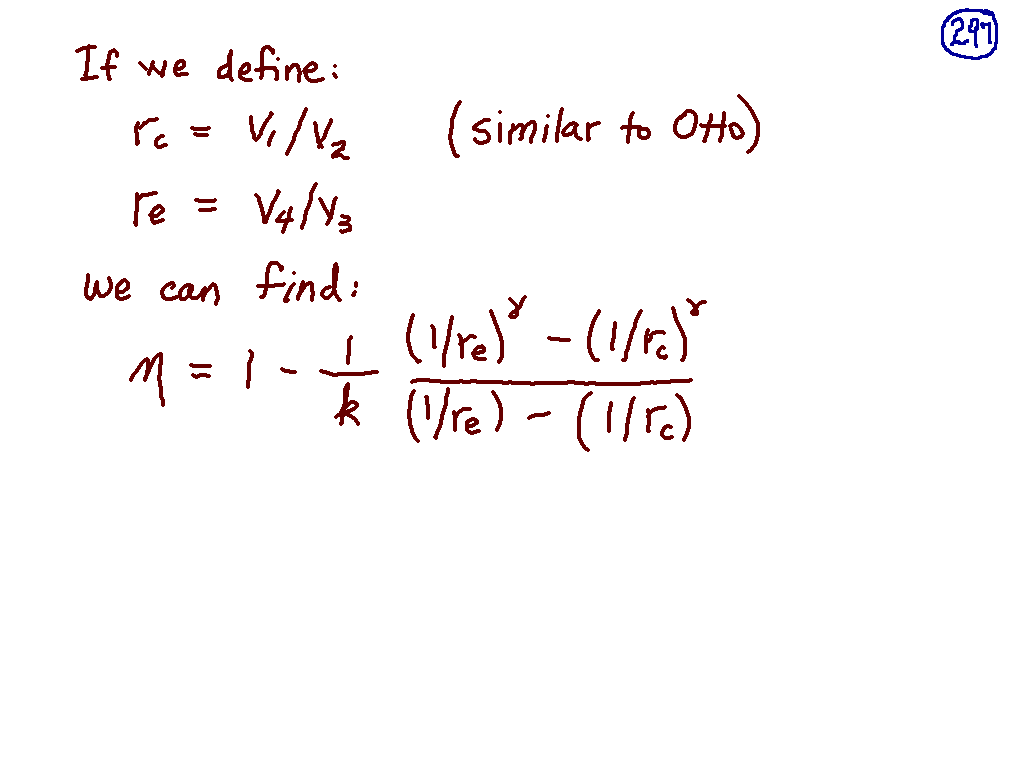 297
If we define:
rc = V1/V2 (similar to Otto)
re = V4/V3
we can find:
η = 1 - 1/k ((1/re)^γ - (1/rc)^γ)/((1/re) - (1/rc))